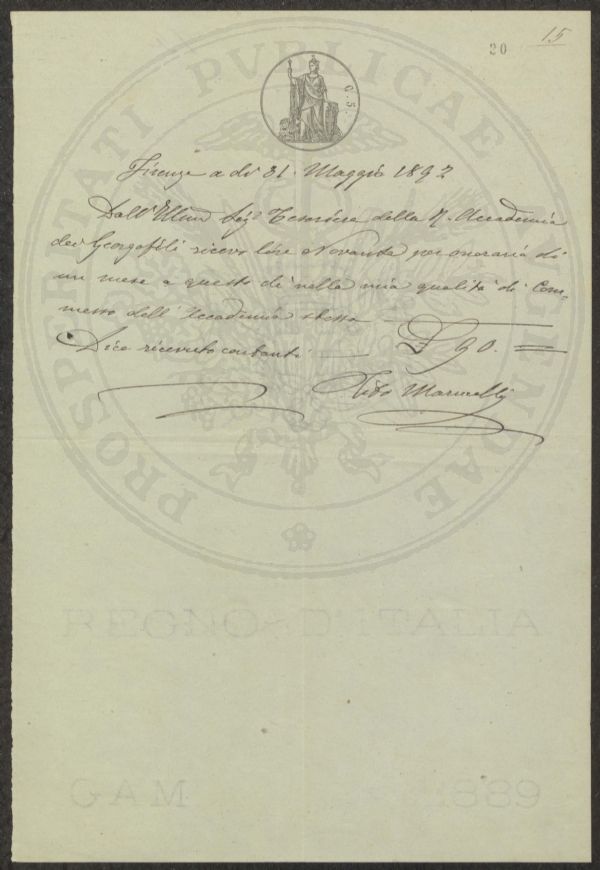 15
20
C. 5.
Firenze a dì 31. Maggio 1892
Dall' Illmo Sigr Tesoriere della R. Accademia
dei Georgofili ricevo lire Novanta per onorario di
un mese a questo dì nella mia qualità di Com-
messo dell' Accademia stessa
Dico ricevuto contanti £ 90. =
Tito Marucelli
PROSPERITATI PVBLICAE AVGENDAE
REGNO D'ITALIA
GAM 1889